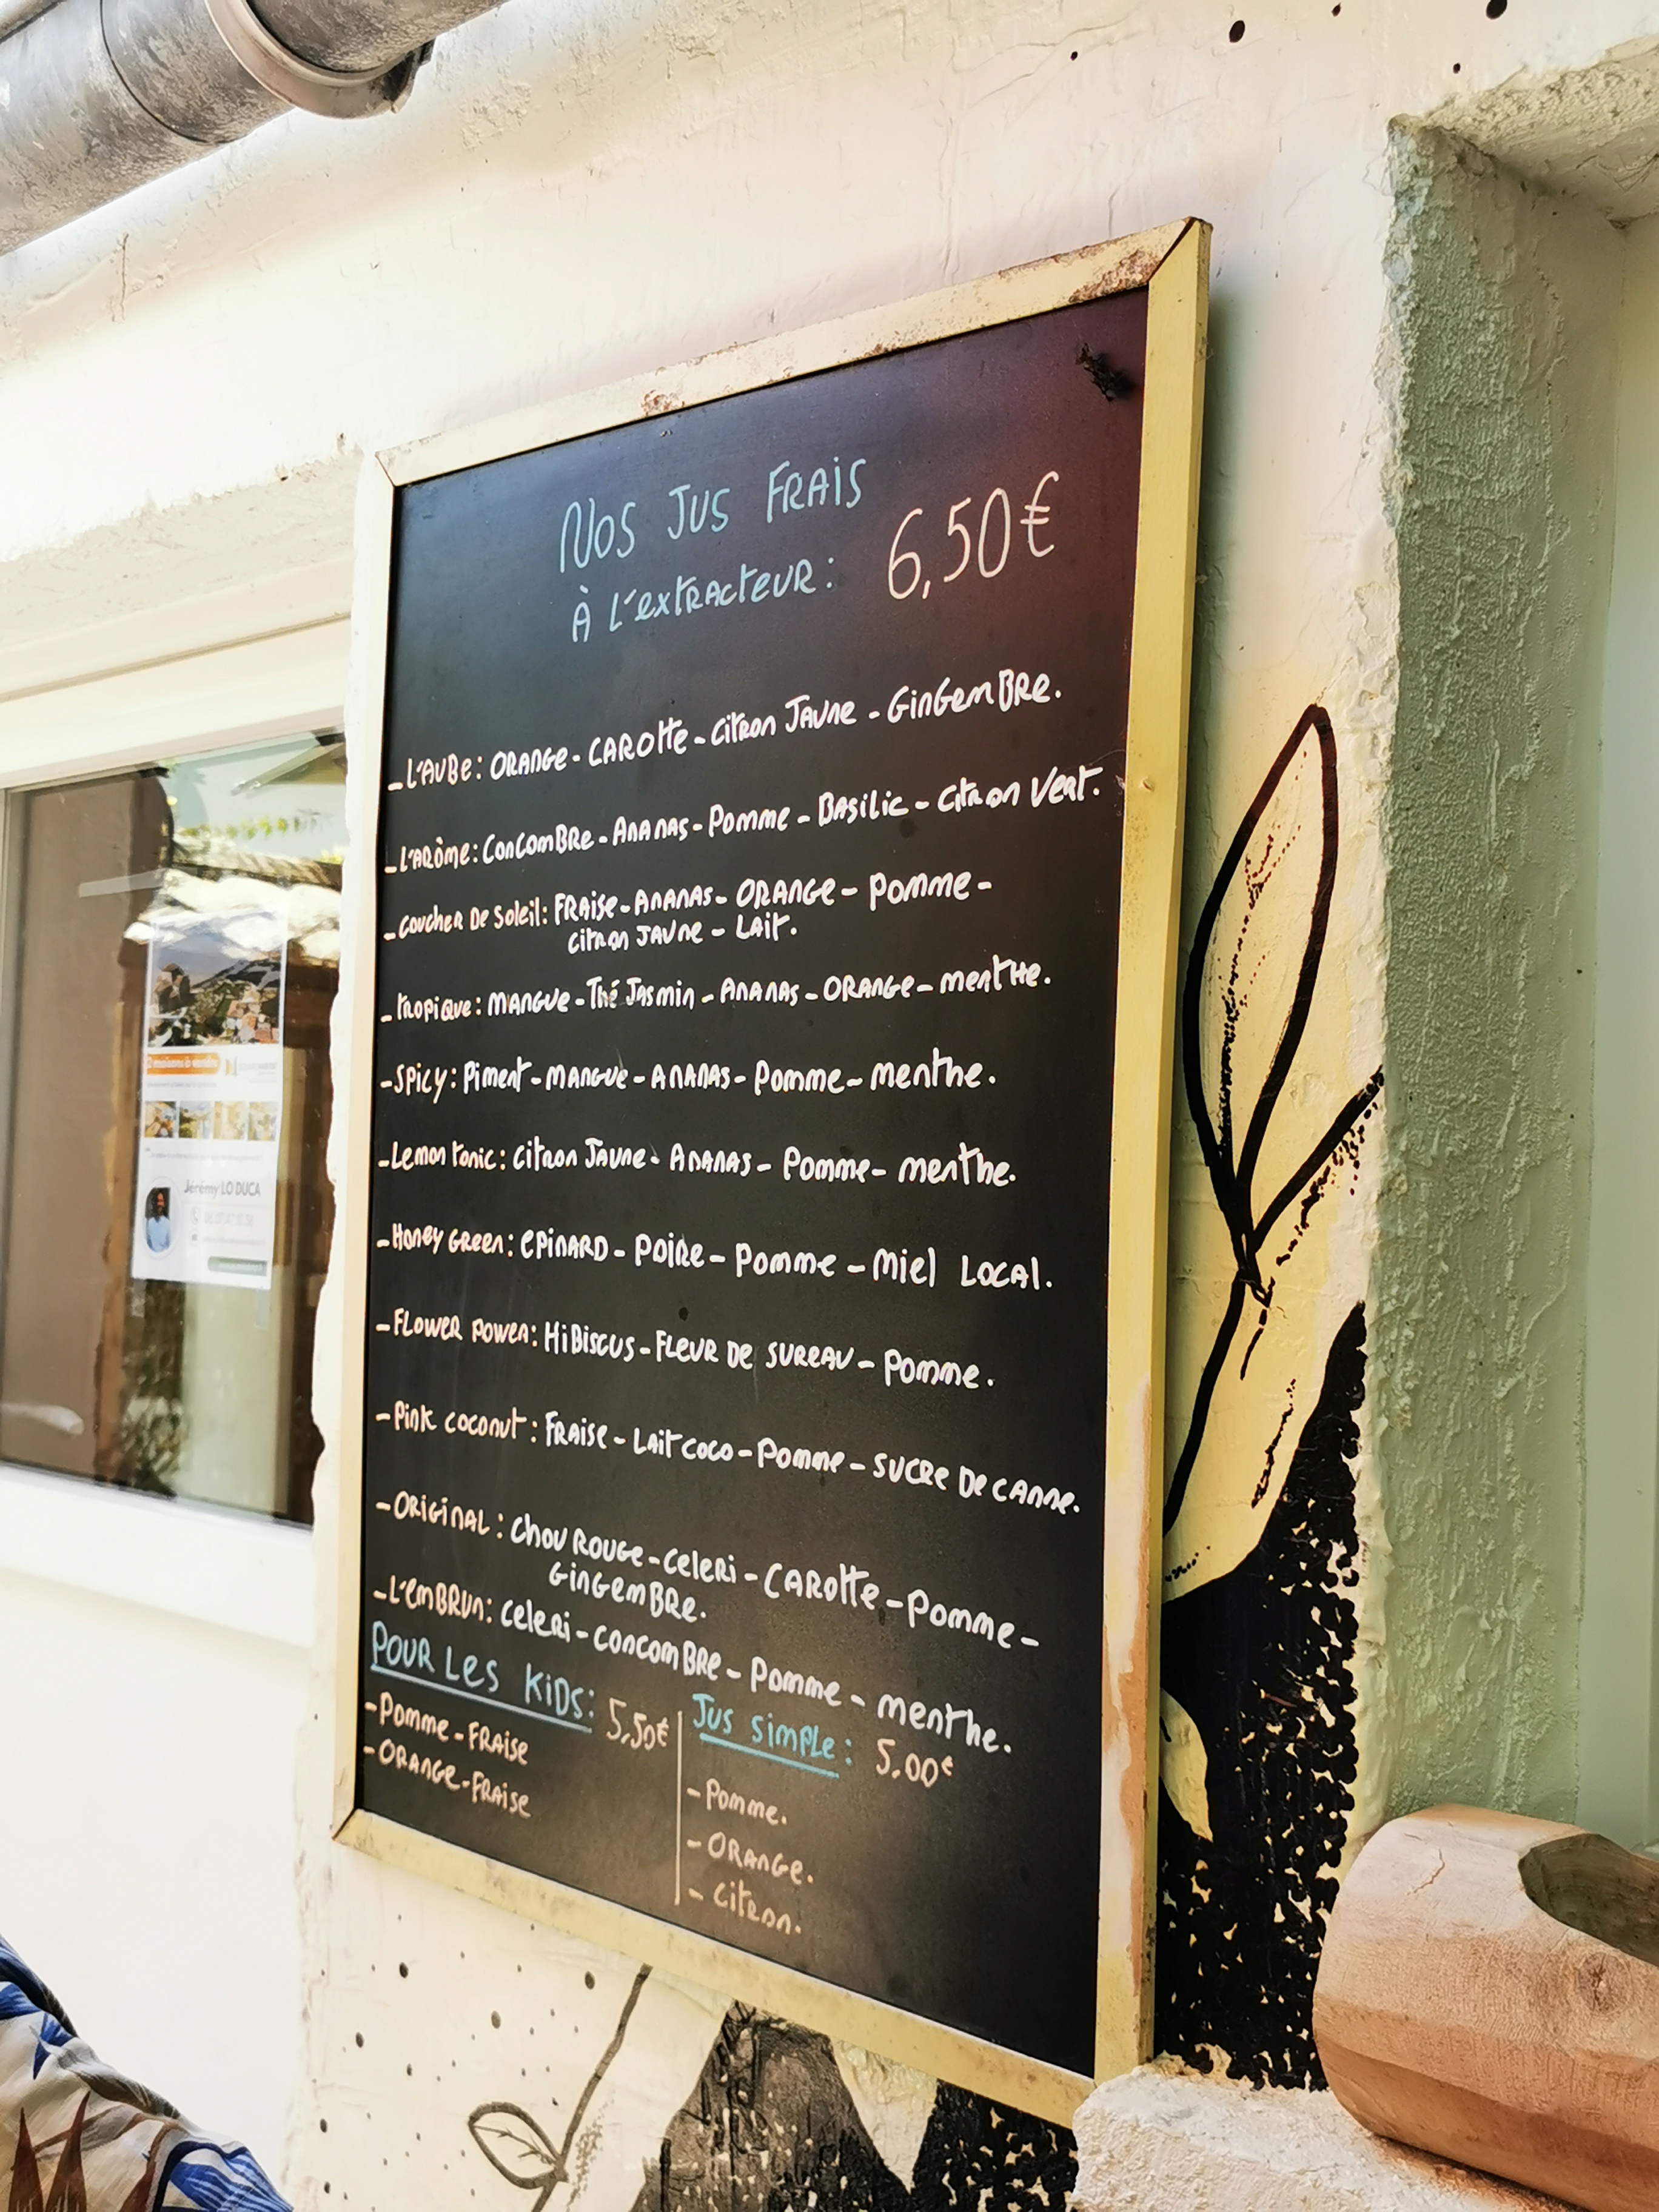 Nos Jus Frais
À l'extracteur : 6,50€
- L'Aube : Orange - Carotte - Citron Jaune - Gingembre.
- L'Arôme : Concombre - Ananas - Pomme - Basilic - Citron Vert.
- Coucher De Soleil : Fraise - Ananas - Orange - Pomme -
Citron Jaune - Lait.
- Tropique : Mangue - Thé Jasmin - Ananas - Orange - Menthe.
- Spicy : Piment - Mangue - Ananas - Pomme - Menthe.
- Lemon Tonic : Citron Jaune - Ananas - Pomme - Menthe.
- Honey Green : Epinard - Poire - Pomme - Miel Local.
- Flower Power : Hibiscus - Fleur De Sureau - Pomme.
- Pink Coconut : Fraise - Lait Coco - Pomme - Sucre De Canne.
- Original : Chou Rouge - Celeri - Carotte - Pomme -
Gingembre.
- L'Embrun : Celeri - Concombre - Pomme - Menthe.
Pour Les Kids : 5,50€
- Pomme - Fraise
- Orange - Fraise
Jus Simple : 5,00€
- Pomme.
- Orange.
- Citron.
Jérémy LO DUCA